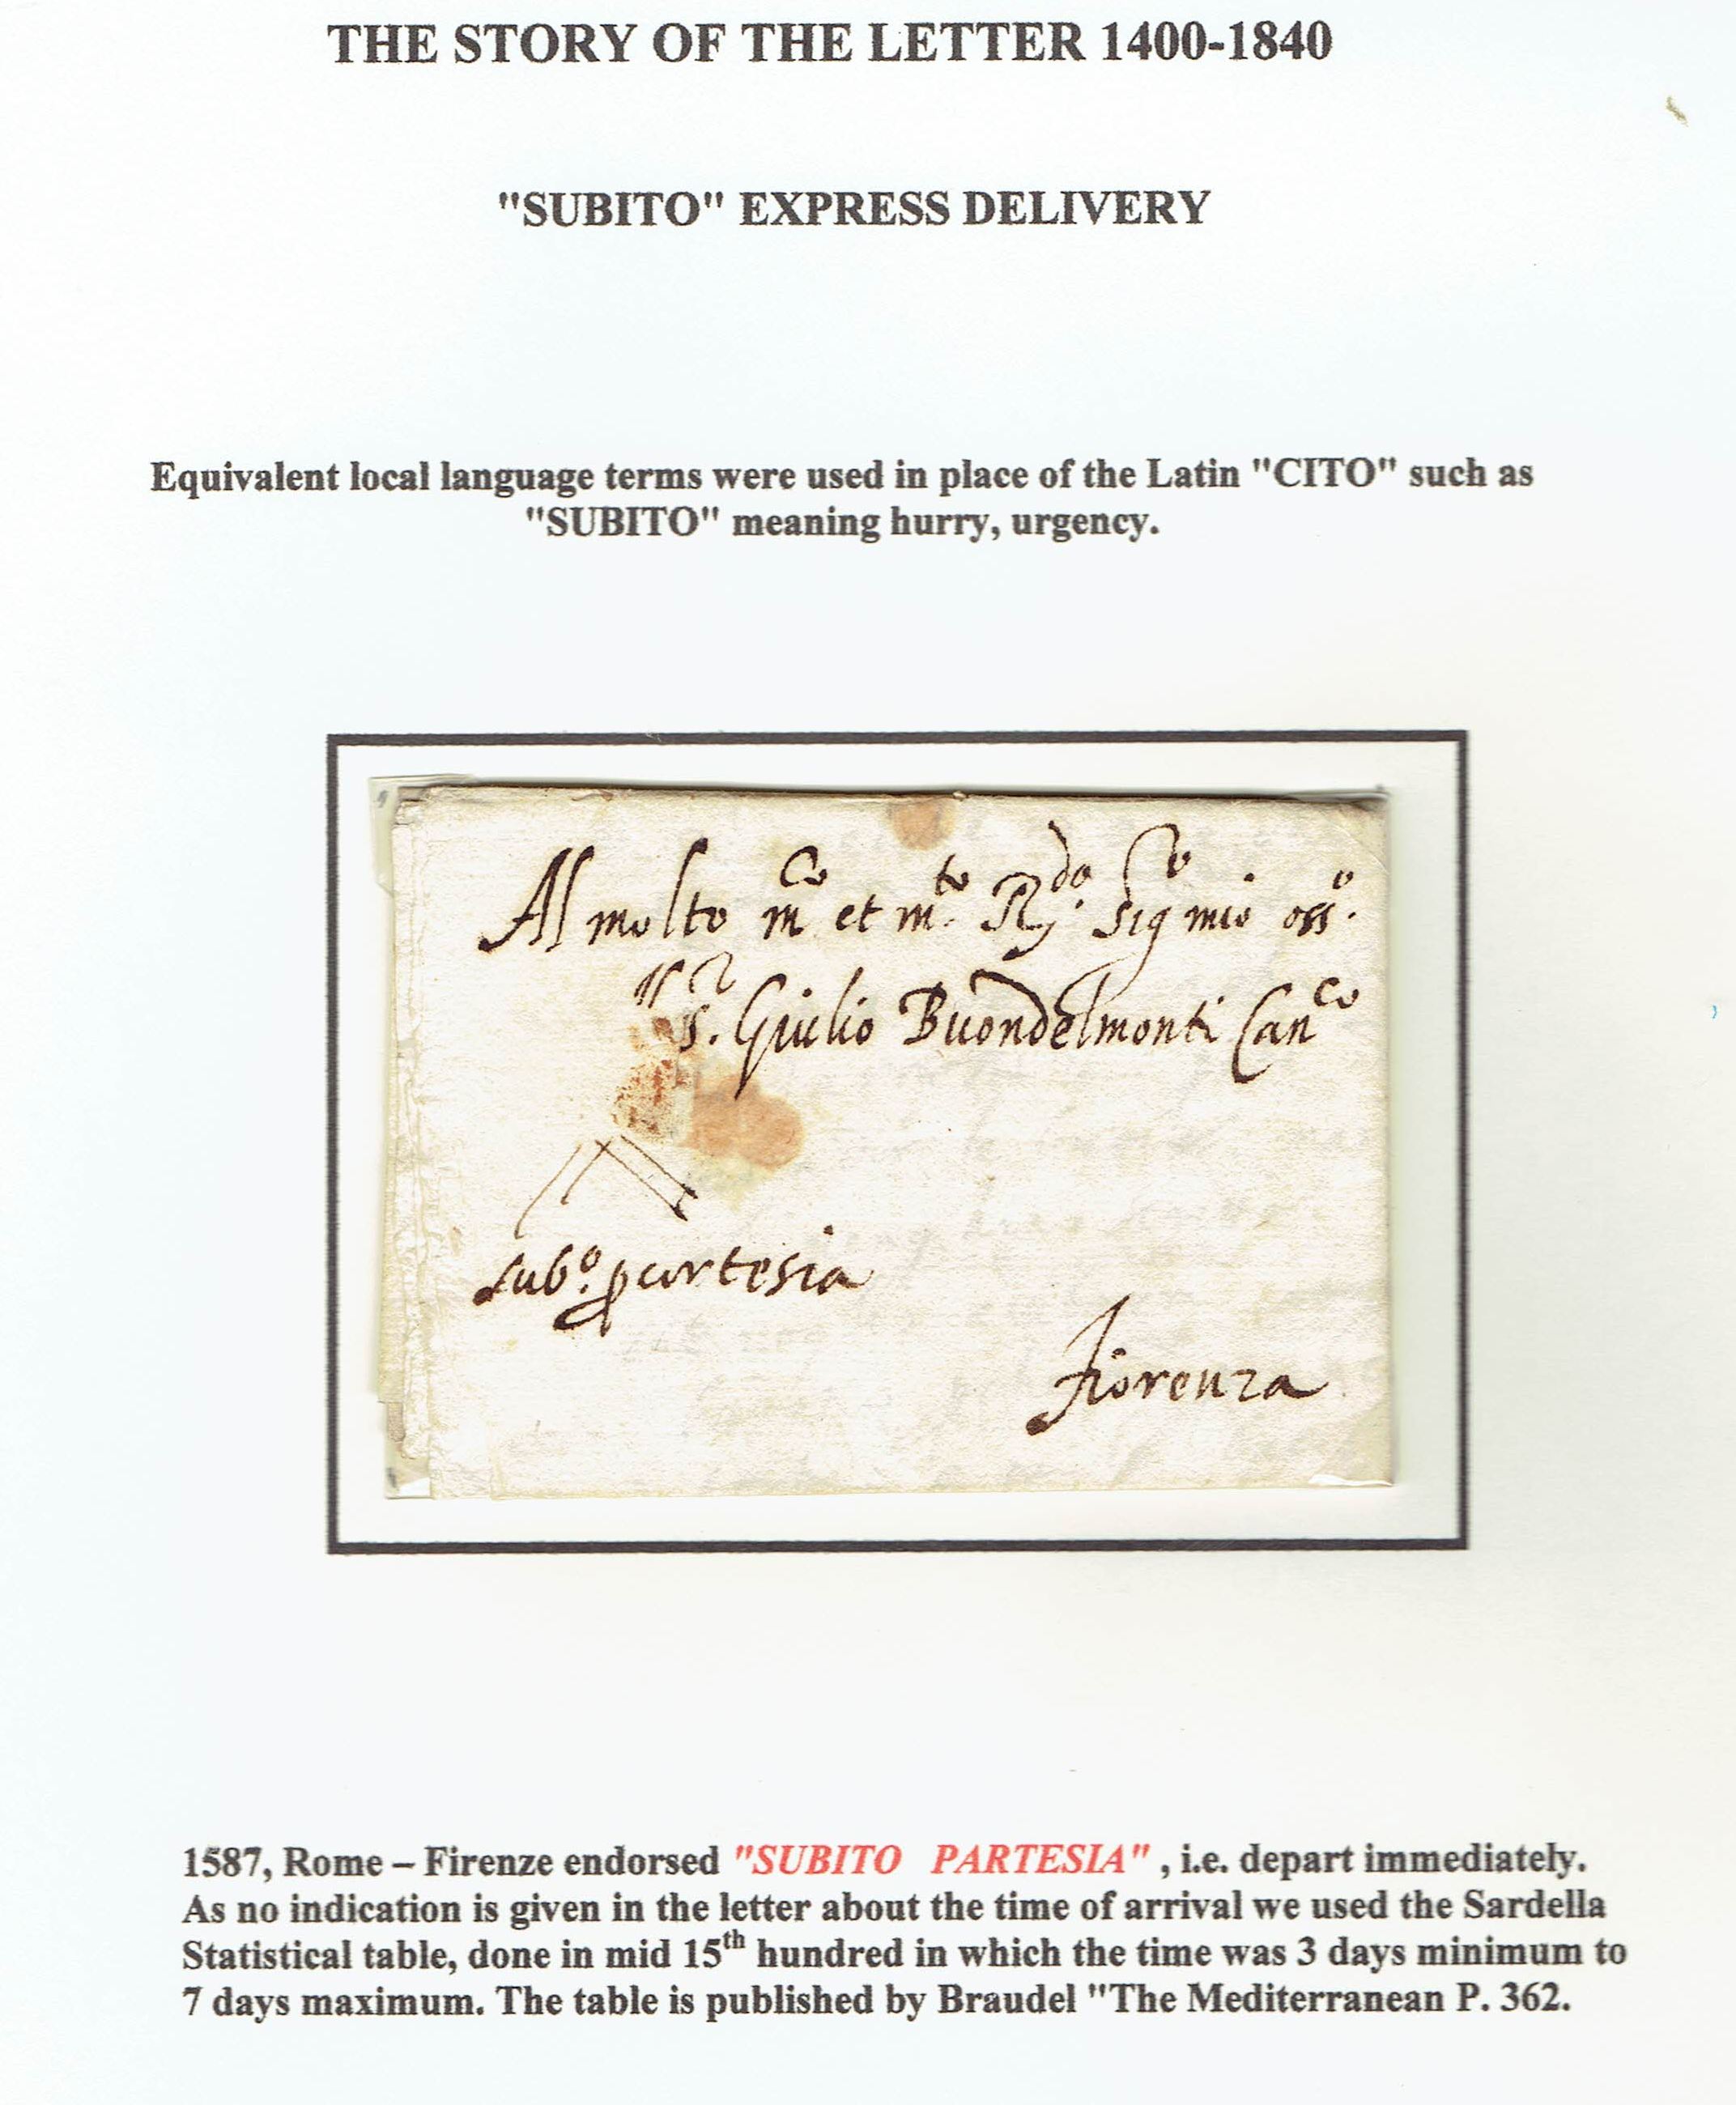 THE STORY OF THE LETTER 1400-1840
"SUBITO" EXPRESS DELIVERY
Equivalent local language terms were used in place of the Latin "CITO" such as
"SUBITO" meaning hurry, urgency.
Al molto m^co et m^to R^do Sig^re mio oss^o.
S. Giulio Buondelmonti Can^co
sub^o. p cortesia
Fiorenza
1587, Rome – Firenze endorsed "SUBITO PARTESIA" , i.e. depart immediately.
As no indication is given in the letter about the time of arrival we used the Sardella
Statistical table, done in mid 15th hundred in which the time was 3 days minimum to
7 days maximum. The table is published by Braudel "The Mediterranean P. 362.